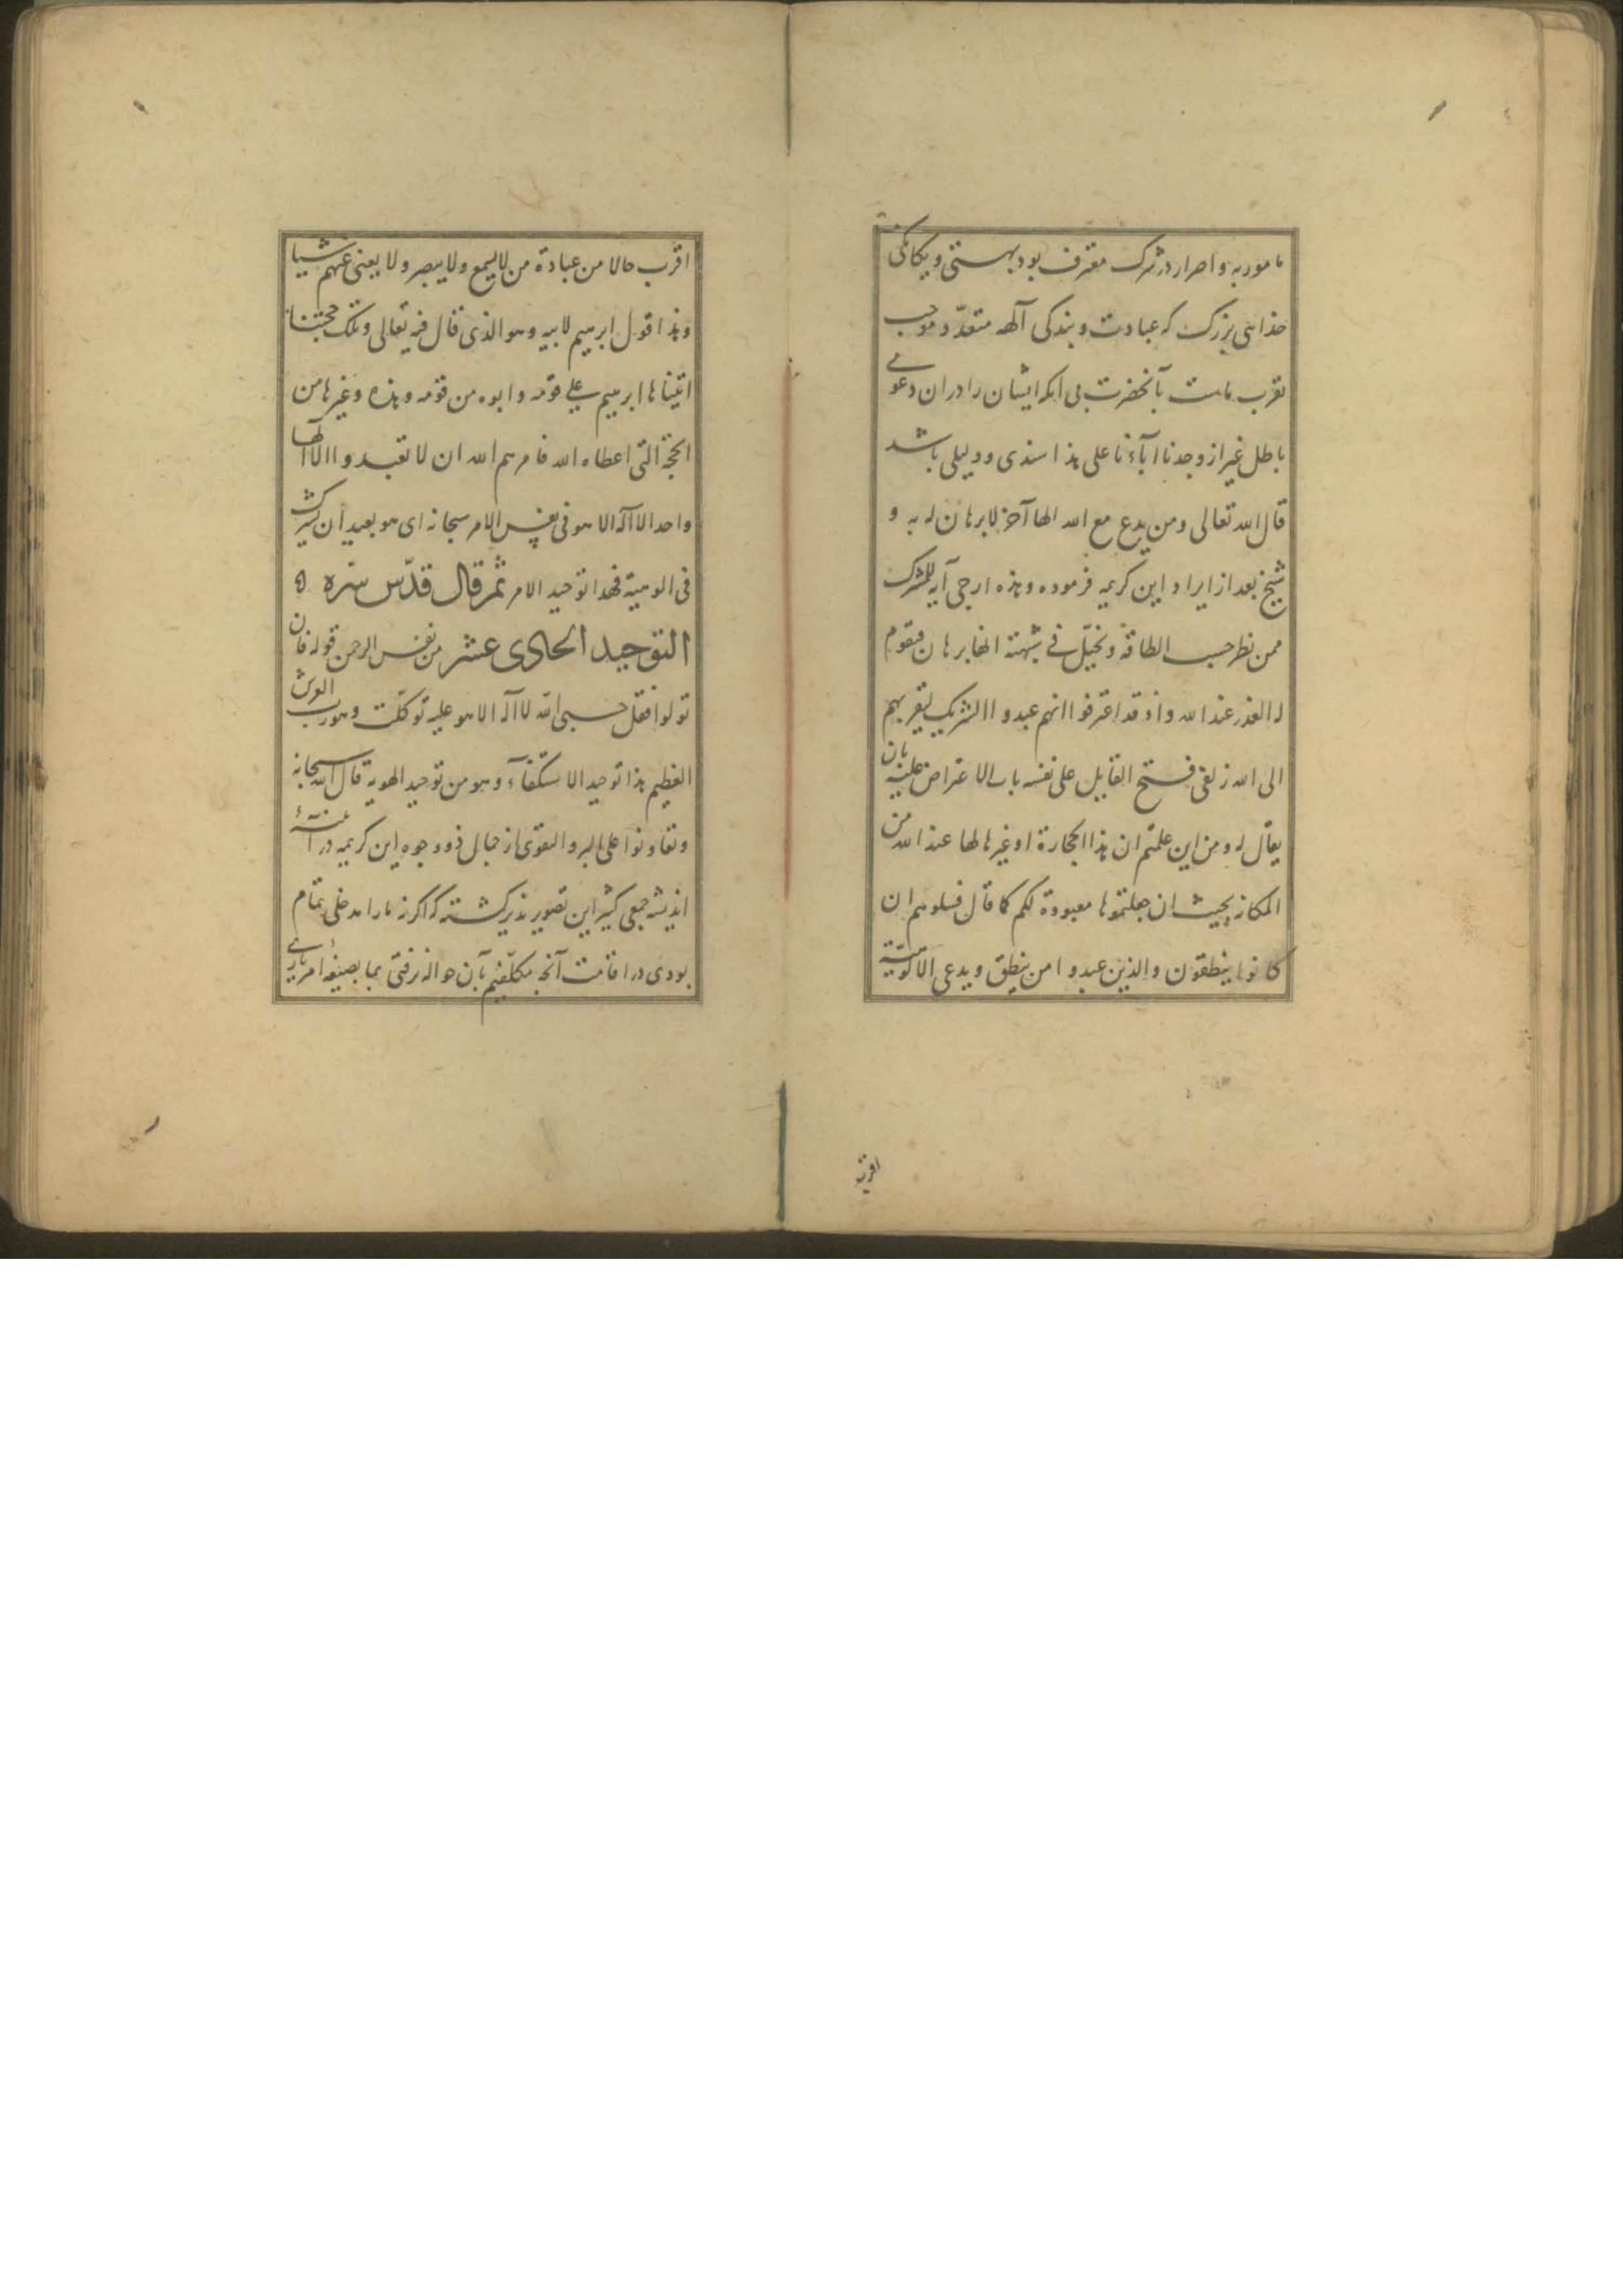 مامور به و اصرار در شرک معترف بود بهستی و یکانکی
خدایی بزرک که عبادت و بندکی آلهه متعدّد موجب
تقرب ماست بآنحضرت بی انکه ایشان را در ان دعوی
باطل غیر از وجدنا آباءنا علی هذا سندی و دلیلی باشد
قال الله تعالی و من یدع مع الله الها آخر لا برهان له به و
شیخ بعد از ایراد این کریمه فرموده و هذه ارجی آیه للمشرک
ممن نظر حسب الطاقة و تخیّل فی شبهته انها برهان فیقوم
له العذر عند الله و اذ قد اعترفوا انهم عبدوا الشریک لیقربهم
الی الله زلفی فتح القایل علی نفسه باب الاعتراض علیه بان
یقال له و من این علمتم ان هذا الحجارة او غیرها لها عند الله من
المکانه بحیث ان جعلتموها معبودة لکم کما قال فسلوهم ان
کانوا ینطقون والذین عبدوا من ینطق و یدعی الالوهیّة
اقرب
اقرب حالا من عبادة من لا یسمع ولا یبصر ولا یغنی عنهم شیا
و هذا قول ابرهیم لابیه و هو الذی قال فیه تعالی و تلک حجتنا
اتیناها ابرهیم علی قومه و ابوه من قومه و هذه و غیرها من
الحجة التی اعطاه الله فامرهم الله ان لا تعبدوا الا الها
واحدا لا آله الا هو فی نفس الامر سبحانه ای هو بعید ان یشرک
فی الوهیته فهذا توحید الامر ثم قال قدّس سرّه
التوحید الحادی عشر من نفس الرحمن قوله فان
تولوا فقل حسبی الله لا آله الا هو علیه توکّلت و هو رب العرش
العظیم هذا توحید الاستکفآء و هو من توحید الهویة قال الله سبحانه
و تعاونوا علی البر و التقوی از جبال ذو وجوه این کریمه در آینهٔ
اندیشه جمعی کثیر این تصویر پذیر کشته که اکر نه ما را مدخلی تمام
بودی در اقامت آنچه مکلّفیم بآن حواله نرفتی بما بصیغهٔ امر باری